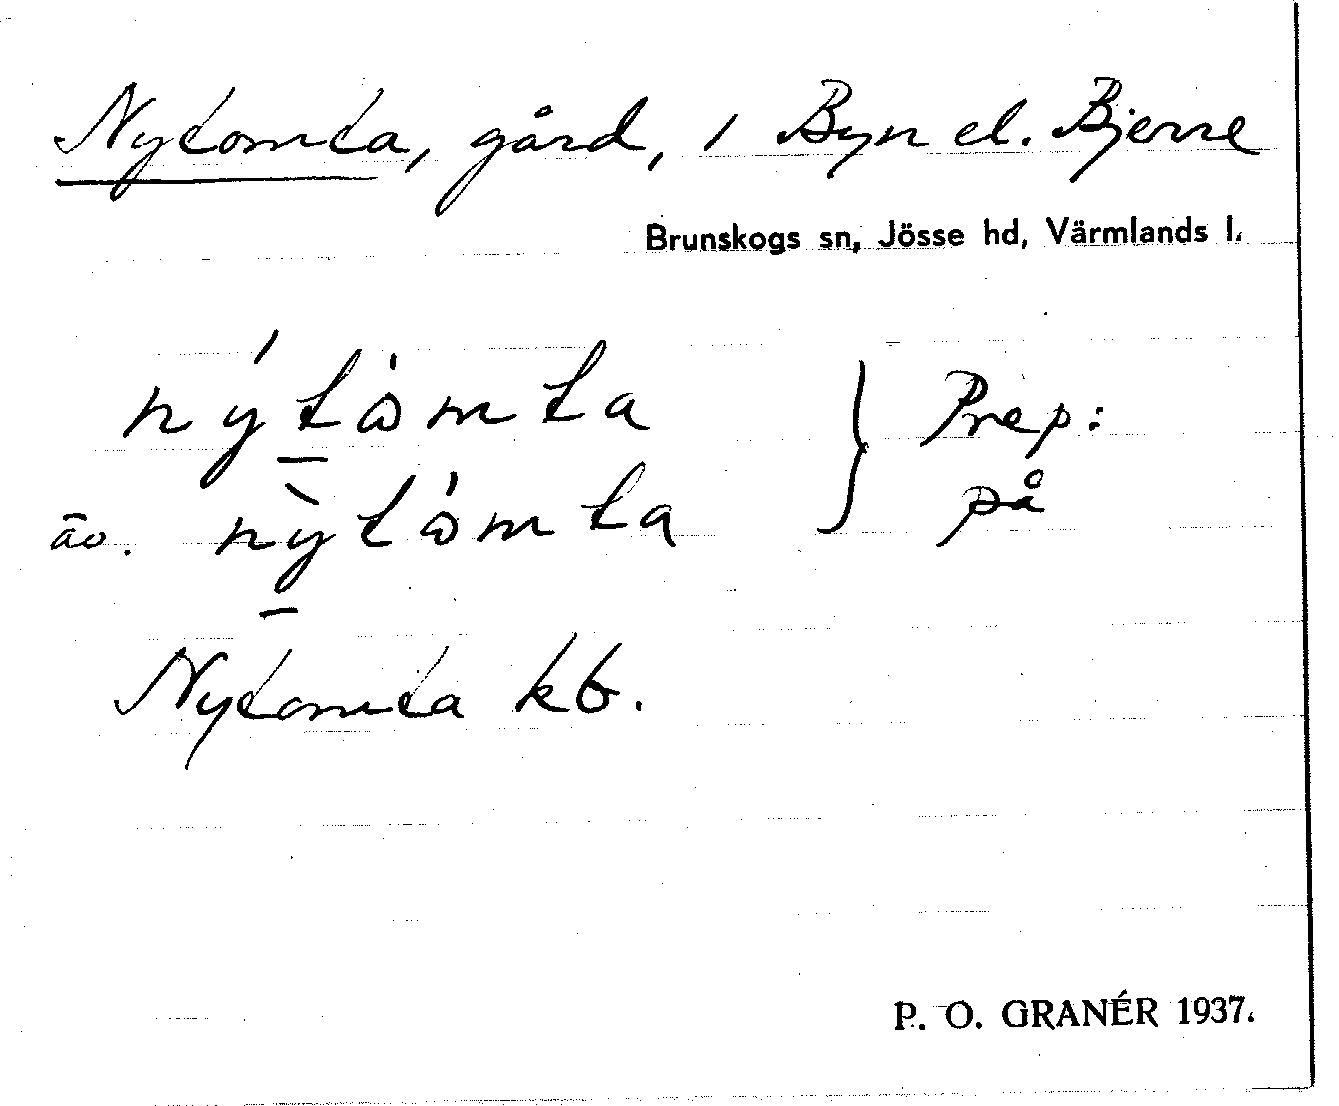 Nytomta, gård, i Byn el. Bjerne
Brunskogs sn, Jösse hd, Värmlands l.
nýtòmta } Prep:
äv. nỳtòmta på
Nytomta kb.
P. O. GRANÉR 1937.